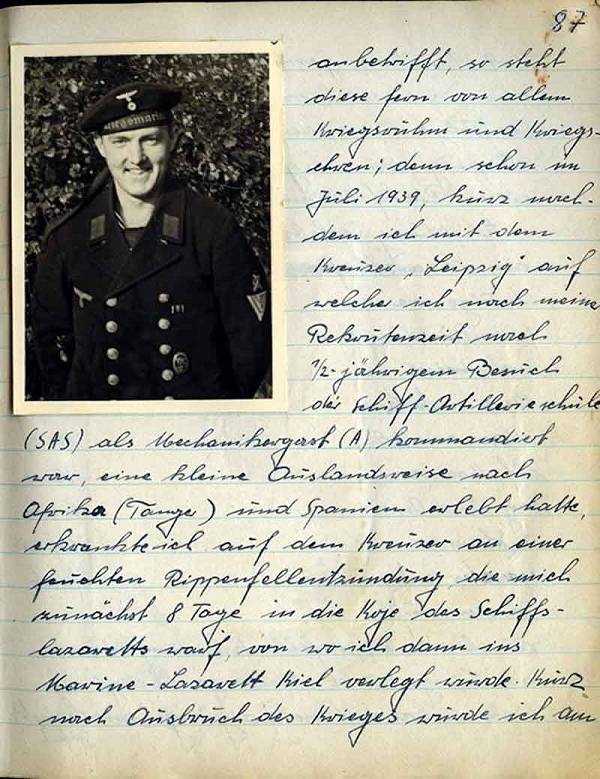 87
anbetrifft, so steht
diese fern von allem
Kriegsruhm und Kriegs-
ehren; denn schon im
Juli 1939, kurz nach-
dem ich mit dem
Kreuzer „Leipzig" auf
welcher ich nach meine
Rekrutenzeit nach
1/2-jährigem Besuch
der Schiff-Artillerieschule
(SAS) als Mechanikergast (A) kommandiert
war, eine kleine Auslandsreise nach
Afrika (Tanger) und Spanien erlebt hatte,
erkrankte ich auf dem Kreuzer an einer
feuchten Rippenfellentzündung, die mich
zunächst 8 Tage in die Koje des Schiffs-
lazaretts warf, von wo ich dann ins
Marine-Lazarett Kiel verlegt wurde. Kurz
nach Ausbruch des Krieges wurde ich am
Kriegsmarin